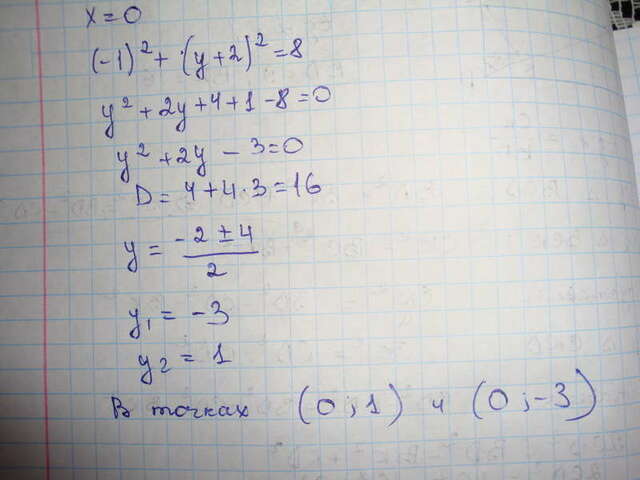 x = 0
(-1)² + (y+2)² = 8
y² + 2y + 4 + 1 - 8 = 0
y² + 2y - 3 = 0
D = 4 + 4·3 = 16
y = (-2 ± 4)/2
y₁ = -3
y₂ = 1
В точках (0 ; 1) и (0 ; -3)